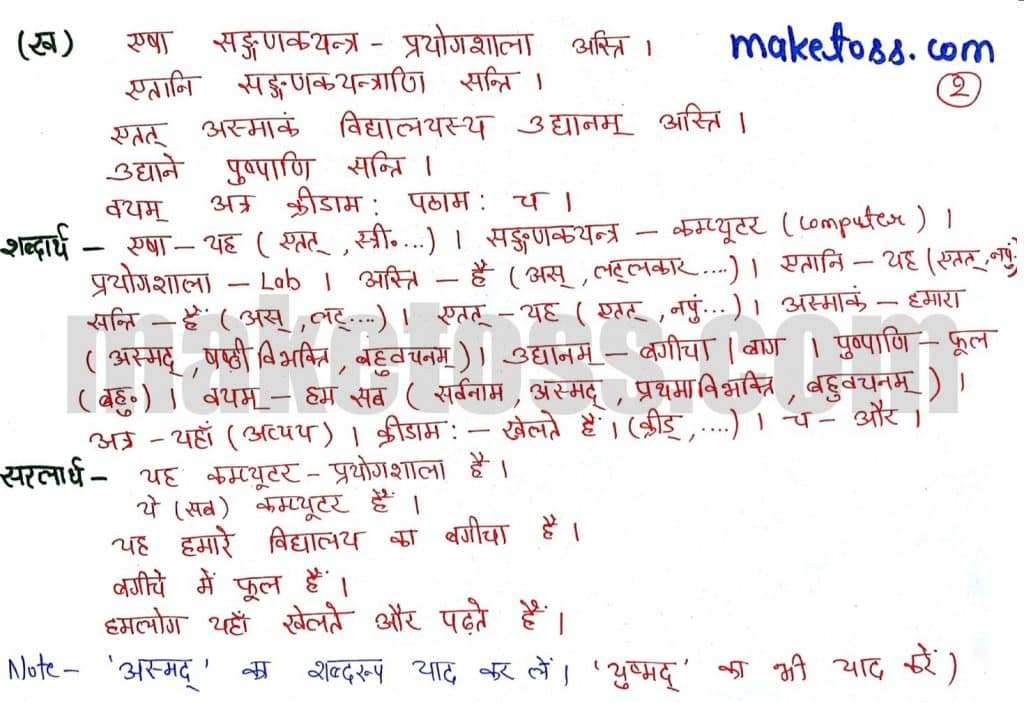 (ख) एषा सङ्गणकयन्त्र - प्रयोगशाला अस्ति । maketoss.com
एतानि सङ्गणकयन्त्राणि सन्ति । २
एतत् अस्माकं विद्यालयस्य उद्यानम् अस्ति ।
उद्याने पुष्पाणि सन्ति ।
वयम् अत्र क्रीडामः पठामः च ।
शब्दार्थ - एषा - यह ( एतत् , स्त्री०...) । सङ्गणकयन्त्र - कम्प्यूटर (computer) ।
प्रयोगशाला - Lab । अस्ति - है (अस् , लट्लकार ....) । एतानि - यह (एतत्, नपुं
सन्ति - हैं ( अस् , लट्....) । एतत् - यह ( एतत् , नपुं...) । अस्माकं - हमारा
( अस्मद् , षष्ठी विभक्ति , बहुवचनम् ) । उद्यानम् - बगीचा । बाग । पुष्पाणि - फूल
( बहु०) । वयम् - हम सब ( सर्वनाम , अस्मद् , प्रथमा विभक्ति , बहुवचनम् ) ।
अत्र - यहाँ ( अव्यय ) । क्रीडामः - खेलते हैं । (क्रीड् , ....) । च - और ।
सरलार्थ - यह कम्प्यूटर - प्रयोगशाला है ।
ये (सब) कम्प्यूटर हैं ।
यह हमारे विद्यालय का बगीचा है ।
बगीचे में फूल हैं ।
हमलोग यहाँ खेलते और पढ़ते हैं ।
Note - 'अस्मद्' का शब्दरूप याद कर लें । 'युष्मद्' का भी याद करें )
maketoss.com